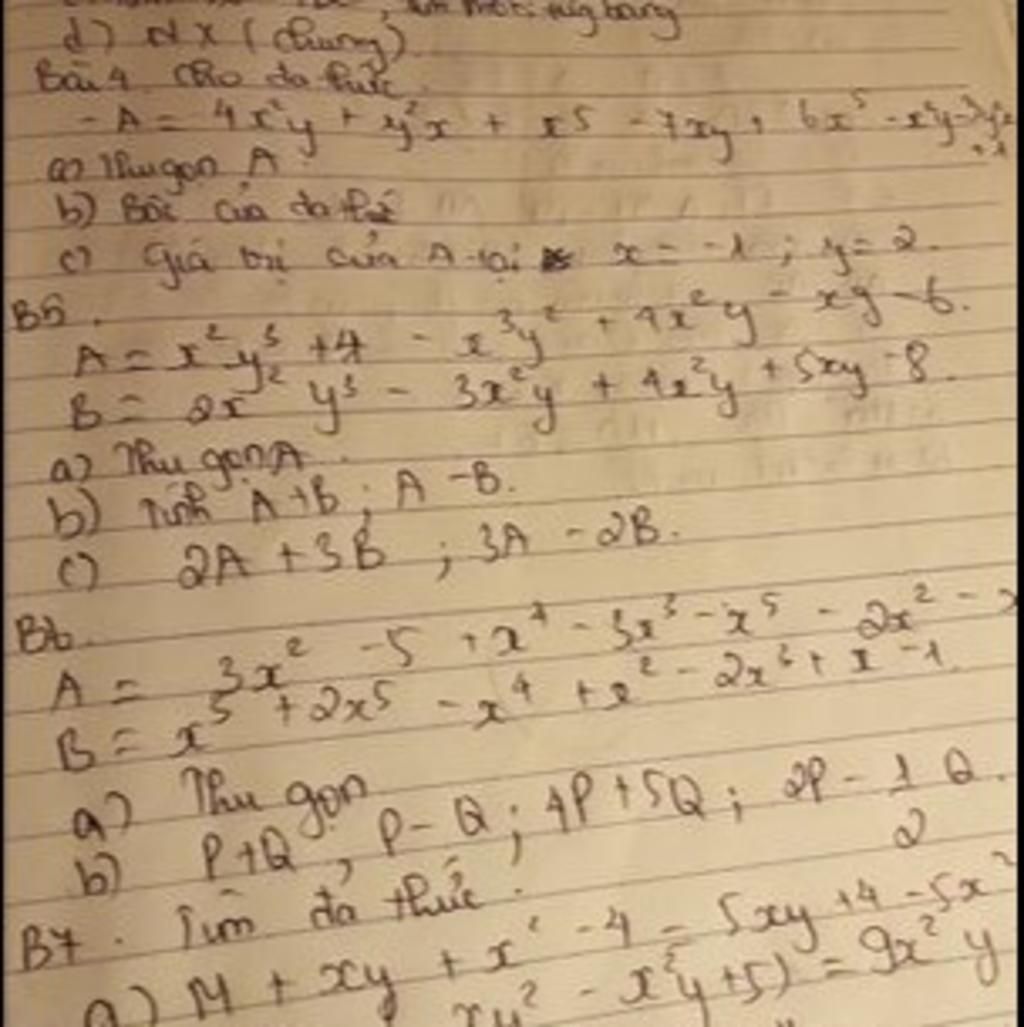 d) NX (chung)
Bài 4 Cho đa thức
- A = 4x²y + y²x + x5 - 7xy + 6x⁵
a) Thu gọn A
b) Bậc của đa thức
c) Giá trị của A tại x = -1 ; y = 2.
B5.
A = x²y³ + 4 - x³y² + 4x²y - xy - 6.
B = 2x² y³ - 3x²y + 4x²y + 5xy - 8.
a) Thu gọn A.
b) Tính A+B ; A - B.
c) 2A + 3B ; 3A - 2B.
B6.
A = 3x² - 5 + x⁴ - 3x³ - x⁵ - 2x² -
B = x⁵ + 2x⁵ - x⁴ + x² - 2x³ + x - 1
a) Thu gọn
b) P+Q , P - Q ; 4P + 5Q ; 2P - 1/2 Q.
B7. Tìm đa thức :
a) M + xy + x² - 4 = 5xy + 4 - 5x²
xy² - x²y + 5) = 9x² y